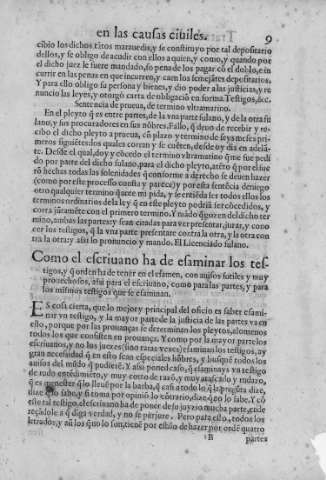 en las causas ciuiles. 9
cibio los dichos tãtos marauedis, y se constituyo por tal depositario
dellos, y se obligo de acudir con ellos a quien, y como, y quando por
el dicho juez le fuere mandado, so pena de los pagar cõ el doblo, e in
currir en las penas en que incurren, y caen los semejãtes depositarios.
Y para ello obligo su persona y bienes, y dio poder a las justicias, y re
nuncio las leyes, y otorgó carta de obligaciõ en forma Testigos, &c.
Sentencia de prueua, de termino vltramarino.
En el pleyto q̃ es entre partes, de la vna parte fulano, y de la otra fu
lano, y sus procuradores en sus nõbres. Fallo, q̃ deuo de recebir y re-
cibo el dicho pleyto a prueua, cõ plazo y termino de seys meses pri-
meros siguiẽtes: los quales corran y se cuẽten, desde oy dia en adelã-
te. Desde el qual, doy y cõcedo el termino vltramarino q̃ me fue pedi
do por parte del dicho fulano, para el dicho pleyto, atẽto q̃ por el fue
rõ hechas todas las solenidades q̃ conforme a derecho se deuen hazer
(como por este processo consta y parece) y por esta sentẽcia deniego
otro qualquier termino q̃ ante mi pida, y se entiẽda ser todos ellos los
terminos ordinarios de la ley q̃ en este pleyto podrã ser cõcedidos, y
corra jũtamẽte con el primero termino. Y mãdo q̃ [] en del dicho ter
mino, ambas las partes y sean citadas para ver presentar, jurar, y cono
cer los testigos, q̃ la vna parte presentare contra la otra, y la otra con
tra la otra: y assi lo pronuncio y mando. El Licenciado fulano.
Como el escriuano ha de esaminar los tes-
tigos, y q̃ orden ha de tener en el esamen, con auisos sutiles y muy
prouechosos, assi para el escriuano, como para las partes, y para
los mismos testigos que se esaminan.
ES cosa cierta, que lo mejor y principal del oficio es saber esami-
nar vn testigo, y la mayor parte de la justicia de las partes va en
esto, porque por las prouanças se determinan los pleytos, alomenos
todos los que consisten en prouança. Y como por la mayor parte los
escriuanos, y no los juezes (sino raras vezes) esaminan los testigos, ay
gran necessidad q̃ en esto sean especiales hõbres, y busquẽ todos los
auisos del mũdo q̃ pudierẽ. Y assi
de rudo entẽdimiẽto, y muy corto de razõ, y muy atascado y rudazo,
que lo sabe, y si toma por opiniõ lo cõtrario, dize q̃ no lo sabe. Y cõ
este tal testigo, el escriuano ha de poner de su juyzio mucha parte, en de
reçãdole a q̃ diga verdad, y no se perjure. Pero para esto, todos los
letrados, y aũ los que lo son, tienẽ por estilo de hazer por ordẽ quatro
B partes